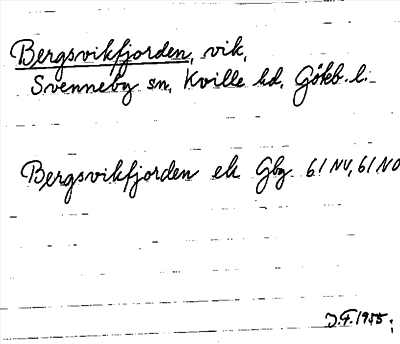 Bergsvikfjorden, vik,
Svenneby sn, Kville hd, Gökb. l.
Bergsvikfjorden ek Gbg 61 NV, 61 NO
J.F. 1955.